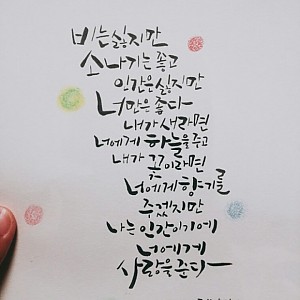 비는 싫지만
소나기는 좋고
인간은 싫지만
너만은 좋다
내가 새라면
너에게 하늘을 주고
내가 꽃이라면
너에게 향기를
주겠지만
나는 인간이기에
너에게
사랑을 준다